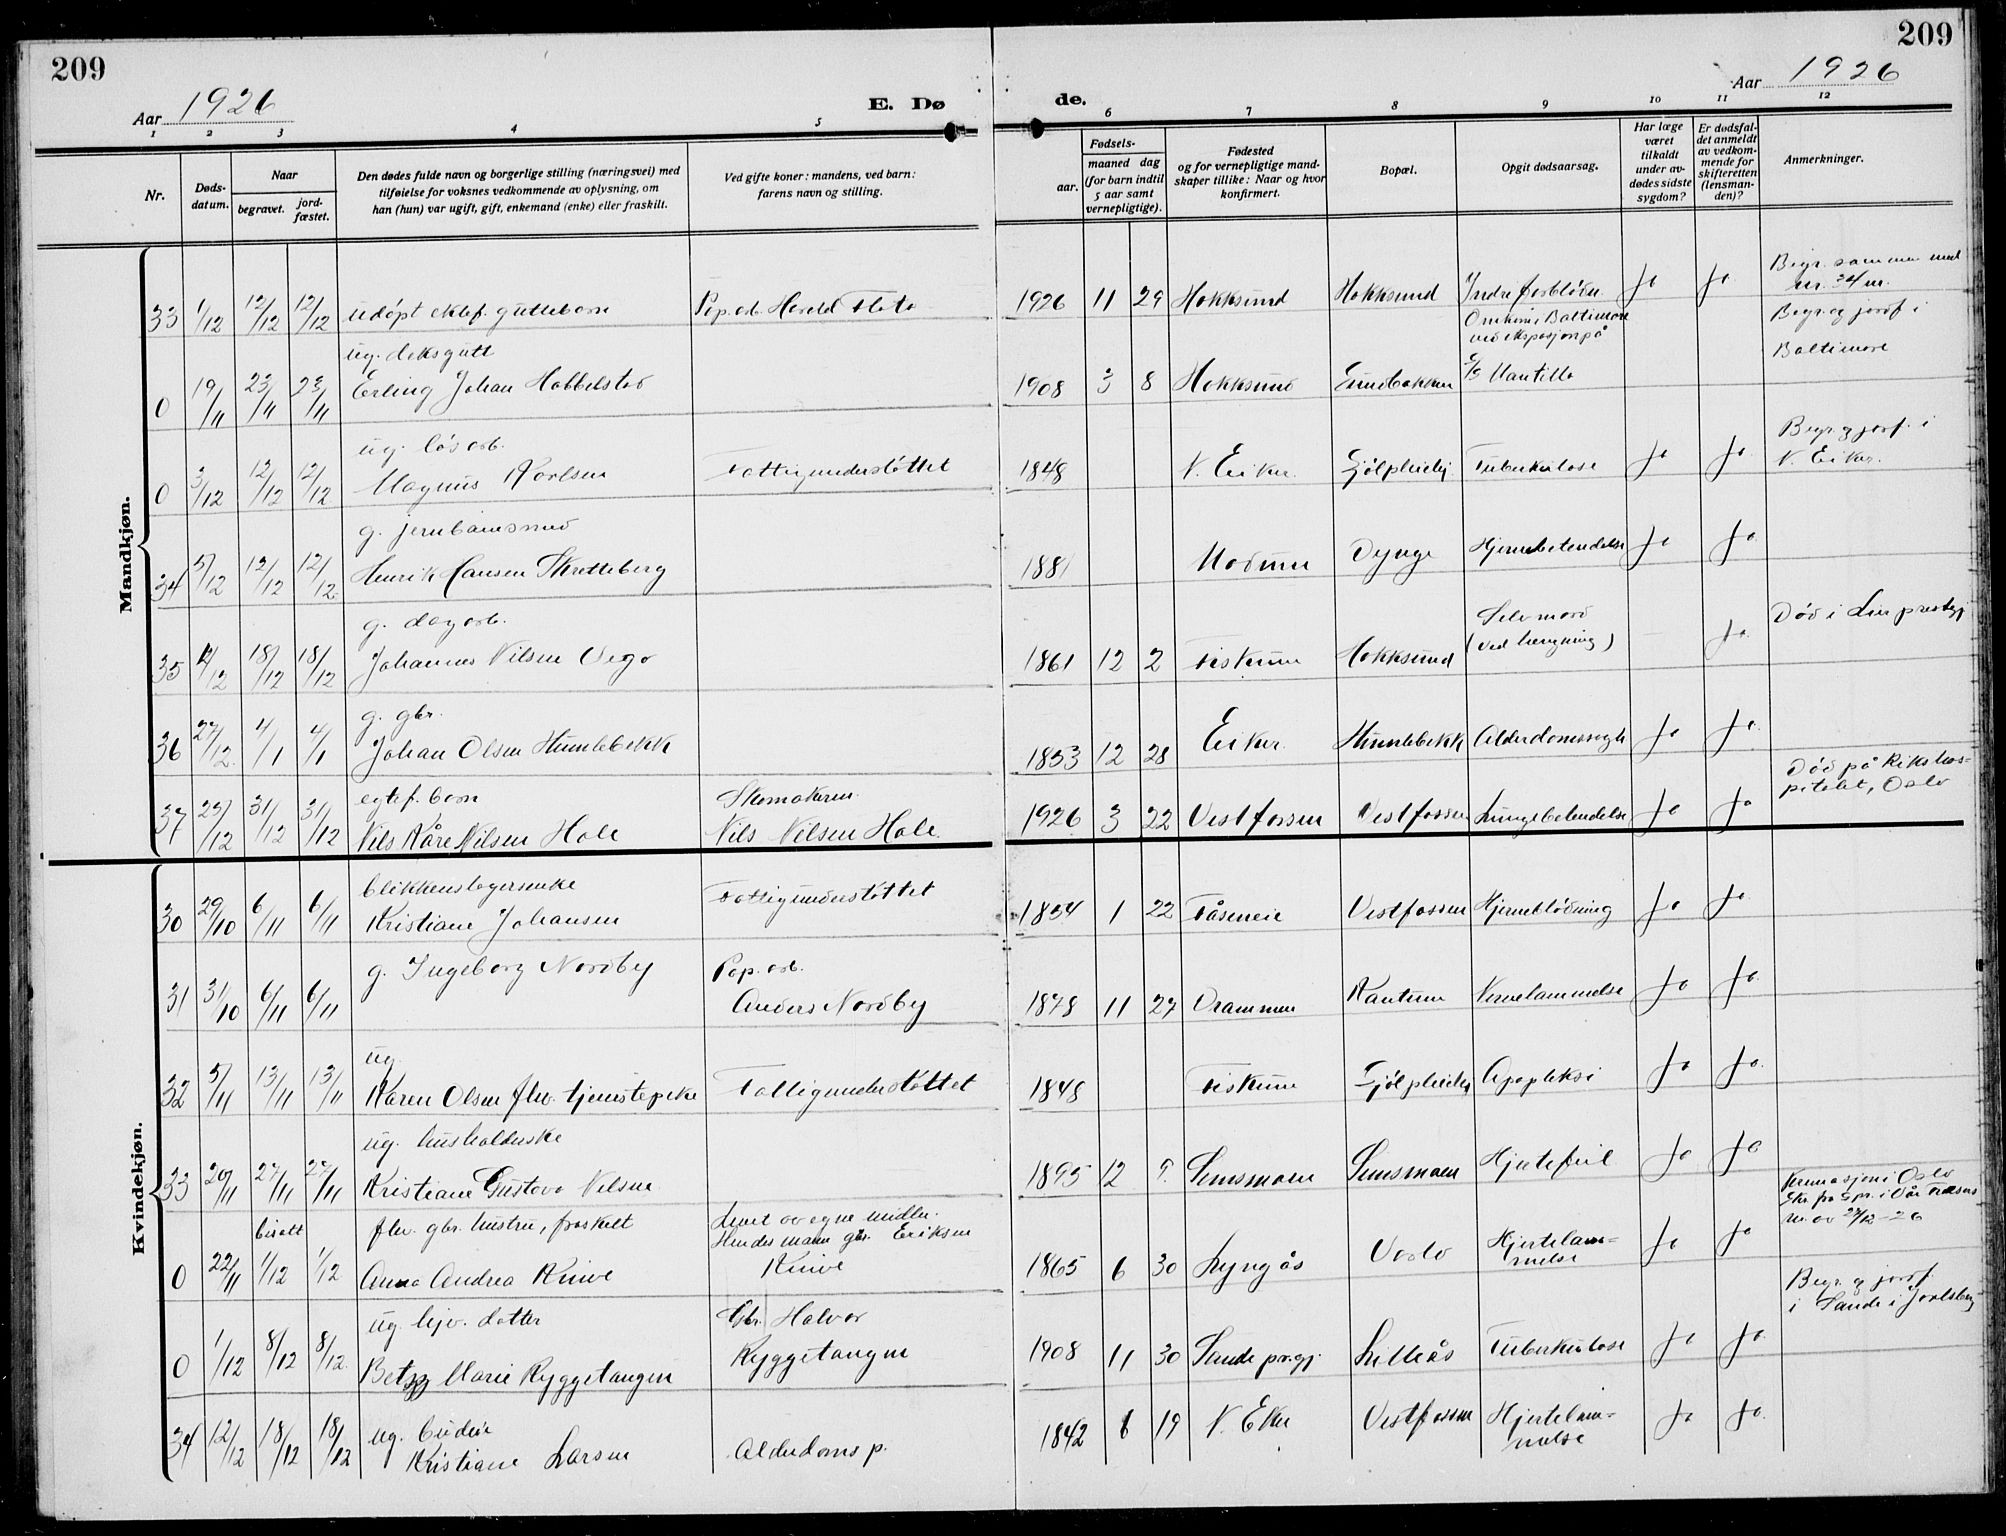 209
209
Aar 1926
E. Dø
de.
Aar 1926
1 2 3 4 5 6 7 8 9 10 11 12
Nr.
Døds-
datum.
Naar
begravet.
jord-
fæstet.
Den dødes fulde navn og borgerlige stilling (næringsvei) med
tilføielse for voksnes vedkommende av oplysning, om
han (hun) var ugift, gift, enkemand (enke) eller fraskilt.
Ved gifte koner: mandens, ved barn:
farens navn og stilling.
Fødsels-
aar.
maaned dag
(for barn indtil
5 aar samt
vernepligtige).
Fødested
og for vernepligtige mand-
skaper tillike: Naar og hvor
konfirmert.
Bopæl.
Opgit dødsaarsag.
Har læge
været
tilkaldt
under av-
dødes sidste
sygdom?
Er dødsfal-
det anmeldt
av vedkom-
mende for
skifteretten
(lensman-
den)?
Anmerkninger.
Mandkjøn.
33 1/12 12/12 12/12 udøpt ektef. guttebarn Pap.arb. Harald Flata 1926 11 29 Hokksund Hokksund Indre forblødn. ja ja Begr. sammen med nr. 34 m.
0 19/11 23/11 23/11 ug. deksgutt
Erling Johan Hobbelstad 1908 3 8 Hokksund Sundbakken Omkom i Baltimore
ved eksposjon på
E/S Mantilla Begr. og jordf. i
Baltimore
0 3/12 12/12 12/12 ug. løsarb.
Magnus Karlsen Fattigunderstøttet 1848 N. Eiker Fjølpleiehj. Tuberkulose ja ja Begr. og jordf. i
N. Eiker.
34 5/12 12/12 12/12 g. jernbanesmed
Henrik Hansen Skretteberg 1881 Modum Dynge Hjernebetendelse ja ja
35 12/12 18/12 18/12 g. dagarb.
Johannes Nilsen Vego 1861 12 2 Fiskum Hokksund Selvmord
(ved hengning) – ja Død i Lier prestegj.
36 27/12 4/1 4/1 g. gbr.
Johan Olsen Humlebekk 1853 12 28 Eiker Humlebekk Alderdomssvagh. ja ja
37 23/12 31/12 31/12 egtef. barn
Nils Kåre Nilsen Hole Skomakeren
Nils Nilsen Hole 1926 3 22 Vestfossen Vestfossen Lungebetendelse ja ja Død på Rikshos-
pitalet, Oslo
Kvindekjøn.
30 29/10 6/11 6/11 blikkenslagerenke
Kristiane Johansen Fattigunderstøttet 1854 1 22 Fåsneie Vestfossen Hjerneblødning ja ja
31 31/10 6/11 6/11 g. Ingeborg Nordby Pap. arb.
Anders Nordby 1878 11 27 Drammen Kantum Nervelammelse ja ja
32 5/11 13/11 13/11 ug.
Karen Olsen fhv. tjenestepike Fattigunderstøttet 1848 Fiskum Fjølpleiehj. Apopleksi ja ja
33 20/11 27/11 27/11 ug. husholderske
Kristiane Gustava Nilsen 1895 12 9. Semsmoen Semsmoen Hjertefeil ja ja
0 22/11 bisatt 1/12 1/12 fhv. gbr. hustru, fraskilt
Anna Andrea Knive Levet av egne midler.
Hendes mann gbr. Eriksen
Knive 1865 6 30 Lyngås Oslo Hjertelam-
melse ja ja Kremasjon i Oslo
Skr. fra spr. i Vår Frelsers
m. av 27/12-26
0 1/12 8/12 8/12 ug. hjv. datter
Betsy Marie Ryggetangen Gbr. Halvor
Ryggetangen 1908 11 30 Sande pr.gj. Lilleås Tuberkulose ja ja Begr. og jordf.
i Sande i Jarlsberg
34 12/12 18/12 18/12 ug. budeie
Kristiane Larsen Alderdoms p. 1842 6 19 N. Eker Vestfossen Hjertelam-
melse ja ja